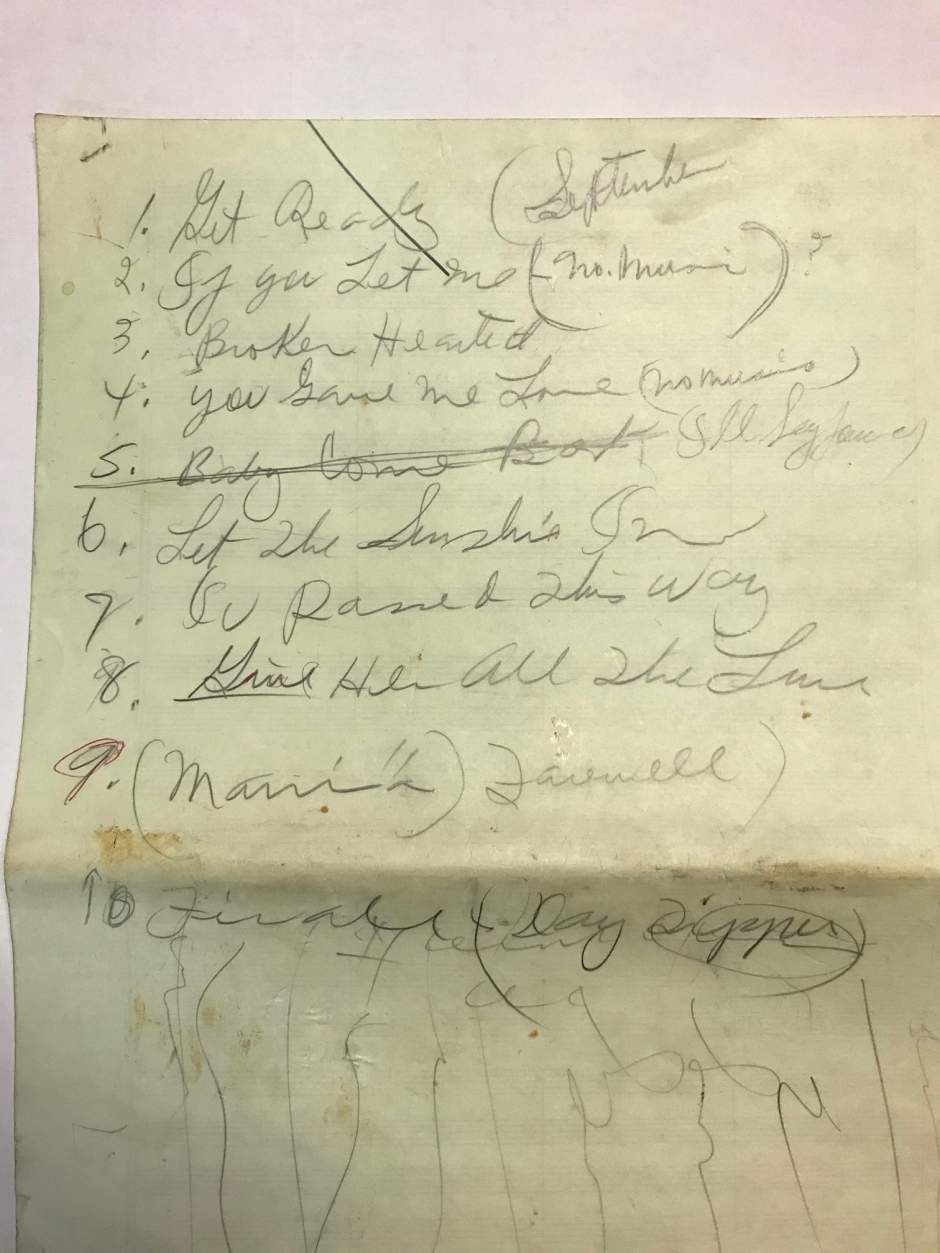 1. Get Ready (September
2. If you Let me (no. Music) ?
3. Broken Hearted
4. you Gave Me Love (no music)
5. Baby Come Back (I'll Say
6. Let The Sunshine In
7. Iv Passed This Way
8. Give Her All The Love
9. (Marvin's) Farewell)
10 Finale (Day Tripper)